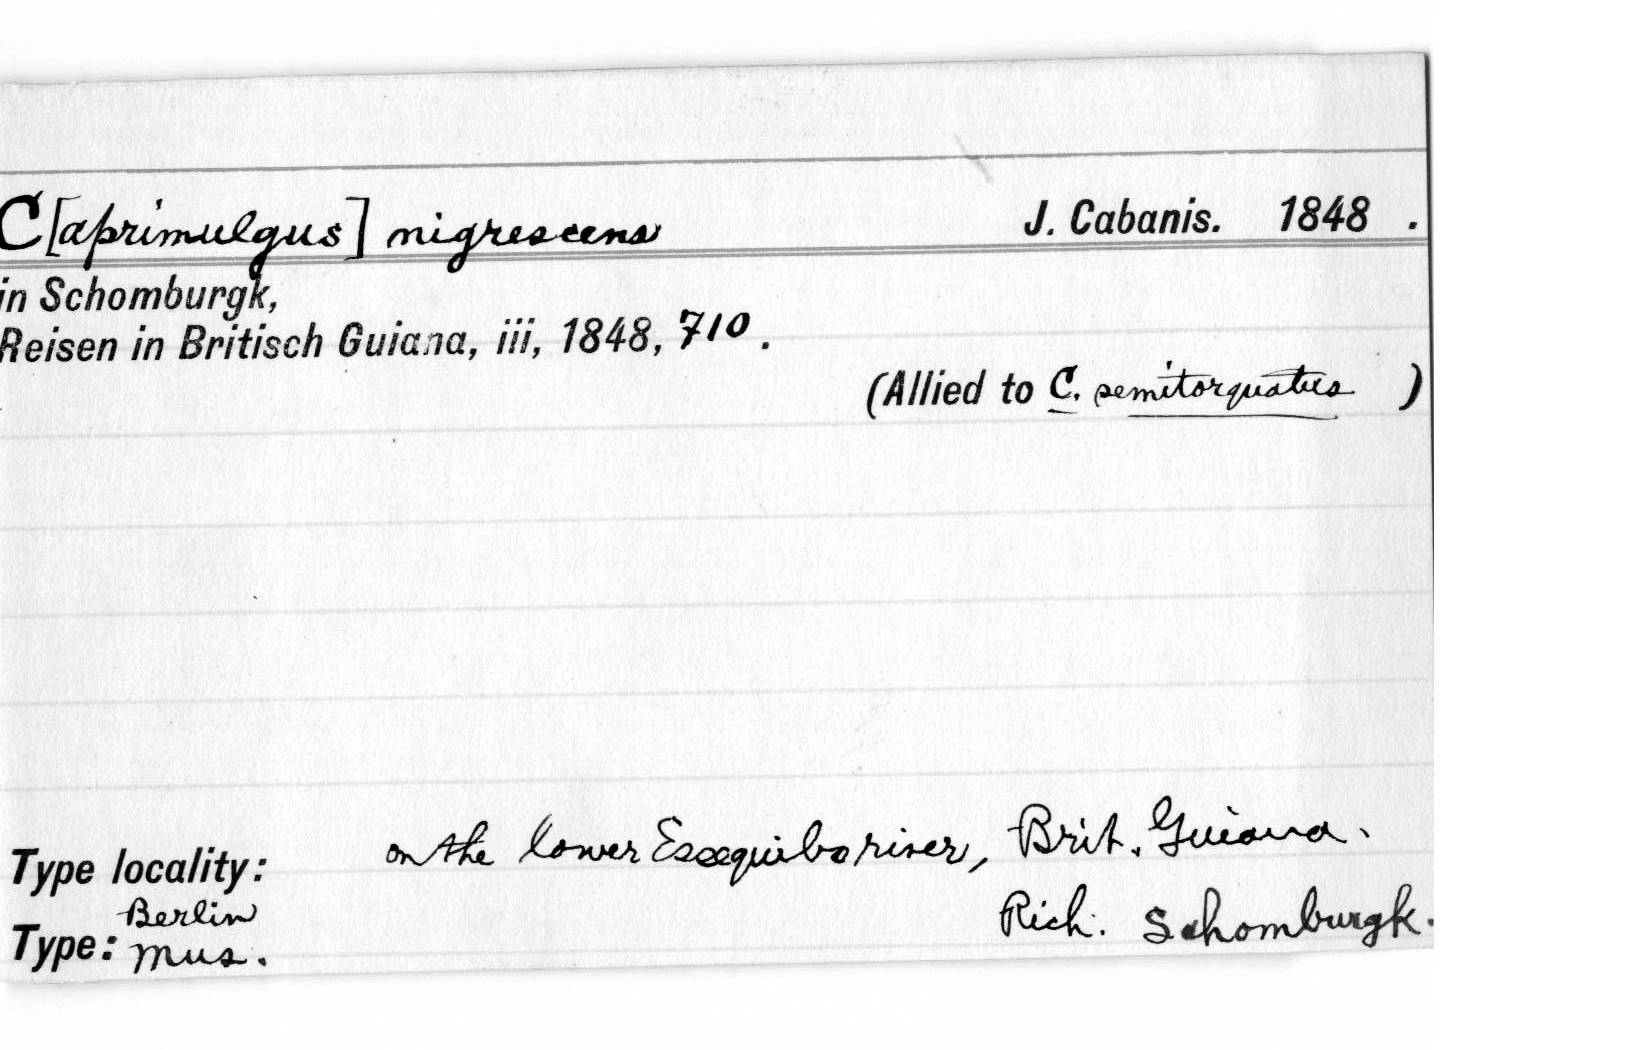 C[aprimulgus] nigrescens J. Cabanis. 1848 .
in Schomburgk,
Reisen in Britisch Guiana, iii, 1848, 710 .
(Allied to C. semitorquatus )
Type locality: on the lower Essequibo river, Brit. Guiana.
Berlin
Type: Mus. Rich. Schomburgk.